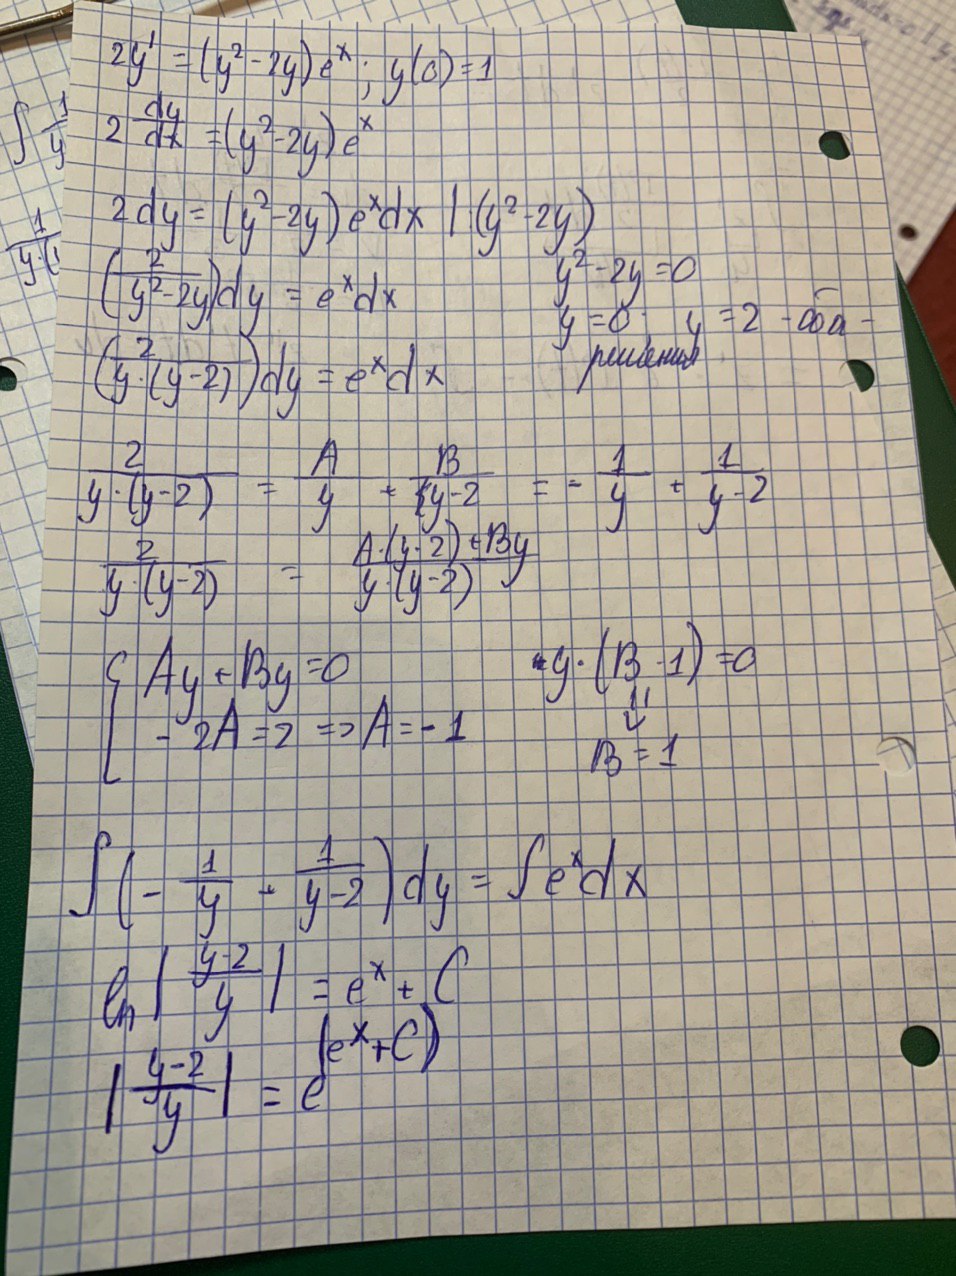 2y' = (y² - 2y) eˣ ; y(0) = 1
2 dy/dx = (y² - 2y) eˣ
2 dy = (y² - 2y) eˣ dx | : (y² - 2y)
(2/(y² - 2y)) dy = eˣ dx
y² - 2y = 0
y = 0 ; y = 2 - оба -
решения
(2/(y·(y-2))) dy = eˣ dx
2/(y·(y-2)) = A/y + B/(y-2) = - 1/y + 1/(y-2)
2/(y·(y-2)) = (A·(y-2) + By)/(y·(y-2))
{ Ay + By = 0
- 2A = 2 => A = -1
y·(B - 1) = 0
⇓
B = 1
∫ (- 1/y + 1/(y-2)) dy = ∫ eˣ dx
ln | (y-2)/y | = eˣ + C
| (y-2)/y | = e^(eˣ + C)
∫ 1/y
1/y·(